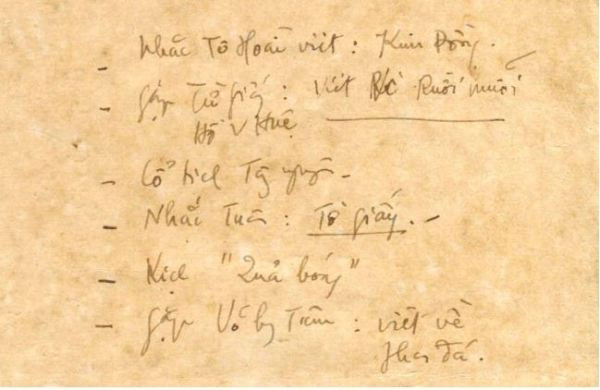 - Nhắc Tô Hoài viết : Kim Đồng.
- Gặp Tử Giấy : Viết Ruồi muỗi
Hồ V Huệ
- Cổ tích Tây nguyên -
- Nhắc Tuân : Tờ giấy. -
- Kịch "Quả bóng"
- Gặp Võ Tâm : viết về
than đá.